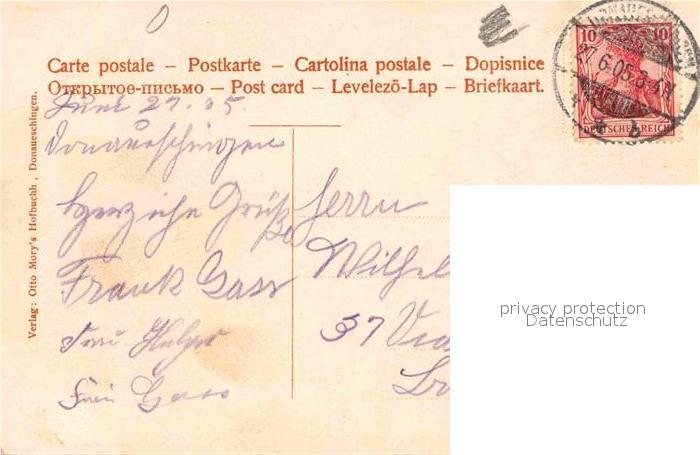 Carte postale – Postkarte – Cartolina postale – Dopisnice
Открытое-письмо – Post card – Levelezö-Lap – Briefkaart.
Verlag: Otto Mory's Hofbuchh, Donaueschingen.
10 10
DEUTSCHES REICH
June 27. 05.
Donaueschingen
Herzliche Grüße
Frank Gass
Frau
Frau Gass
Herrn
Wilhel
37
privacy protection
Datenschutz